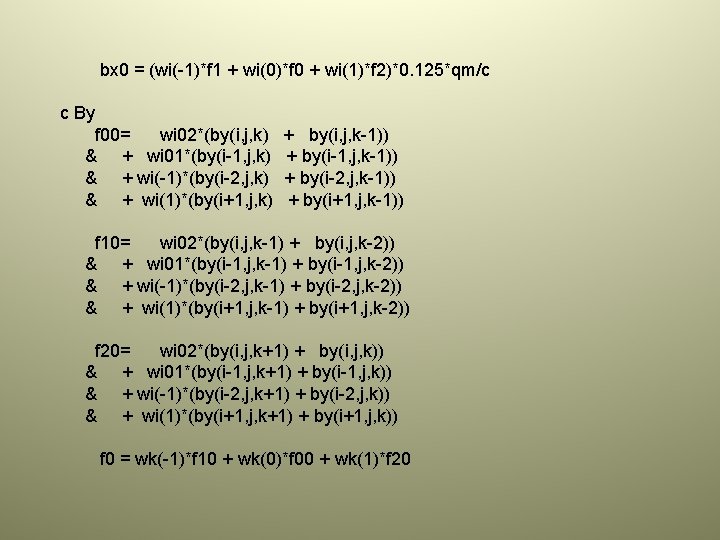 bx0 = (wi(-1)*f1 + wi(0)*f0 + wi(1)*f2)*0.125*qm/c
c By
f00= wi02*(by(i,j,k) + by(i,j,k-1))
& + wi01*(by(i-1,j,k) + by(i-1,j,k-1))
& + wi(-1)*(by(i-2,j,k) + by(i-2,j,k-1))
& + wi(1)*(by(i+1,j,k) + by(i+1,j,k-1))
f10= wi02*(by(i,j,k-1) + by(i,j,k-2))
& + wi01*(by(i-1,j,k-1) + by(i-1,j,k-2))
& + wi(-1)*(by(i-2,j,k-1) + by(i-2,j,k-2))
& + wi(1)*(by(i+1,j,k-1) + by(i+1,j,k-2))
f20= wi02*(by(i,j,k+1) + by(i,j,k))
& + wi01*(by(i-1,j,k+1) + by(i-1,j,k))
& + wi(-1)*(by(i-2,j,k+1) + by(i-2,j,k))
& + wi(1)*(by(i+1,j,k+1) + by(i+1,j,k))
f0 = wk(-1)*f10 + wk(0)*f00 + wk(1)*f20